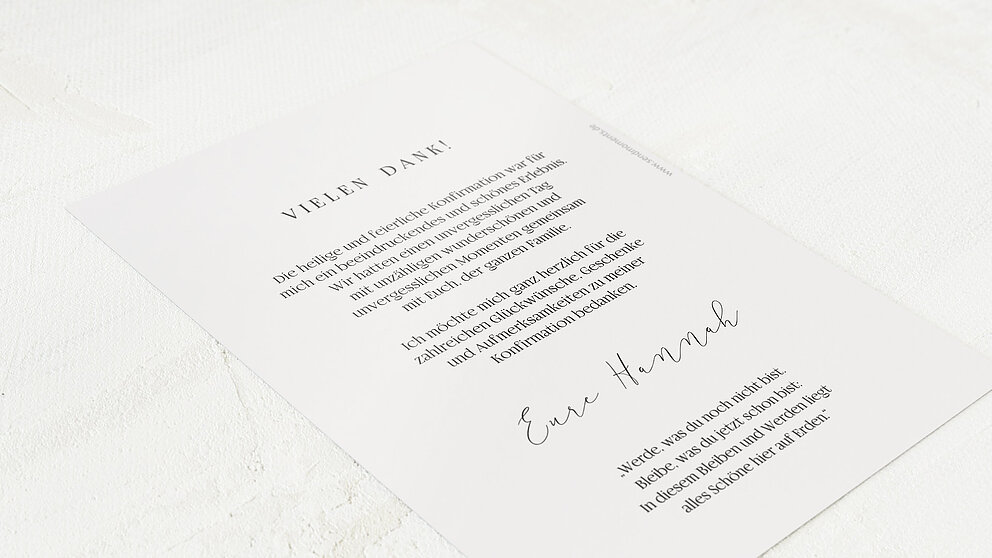 VIELEN DANK!
Die heilige und feierliche Konfirmation war für
mich ein beeindruckendes und schönes Erlebnis.
Wir hatten einen unvergesslichen Tag
mit unzähligen wunderschönen und
unvergesslichen Momenten gemeinsam
mit Euch, der ganzen Familie.
Ich möchte mich ganz herzlich für die
zahlreichen Glückwünsche, Geschenke
und Aufmerksamkeiten zu meiner
Konfirmation bedanken.
Eure Hannah
„Werde, was du noch nicht bist.
Bleibe, was du jetzt schon bist:
In diesem Bleiben und Werden liegt
alles Schöne hier auf Erden.“
www.sendmoments.de